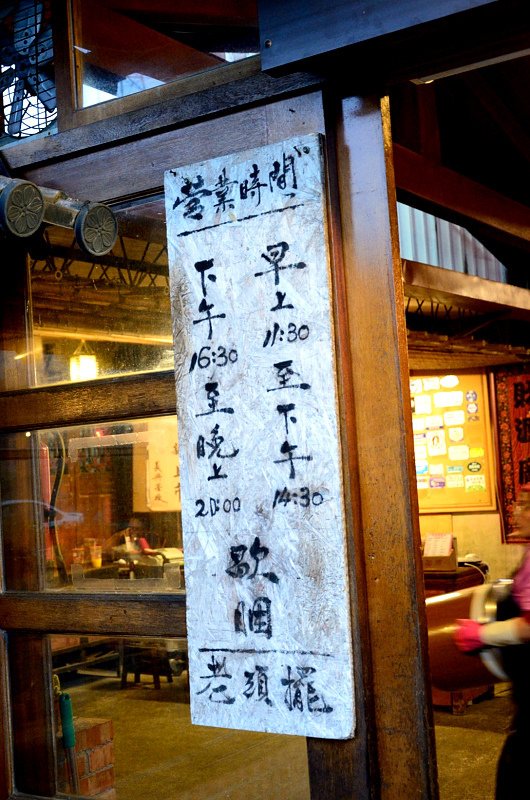 營業時間
早上11:30至下午14:30
下午16:30至晚上20:00
歇睏
老頭擺